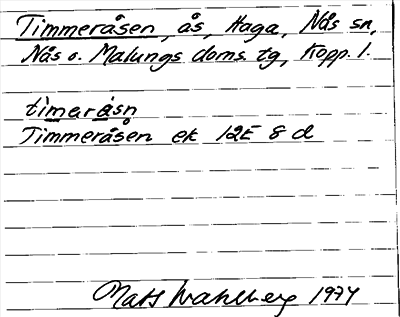 Timmeråsen, ås, Haga, Nås sn,
Nås o. Malungs doms. tg, Kopp. l.
timaråsn
Timmeråsen ek 12E 8 d
Mats Wahlberg 1974